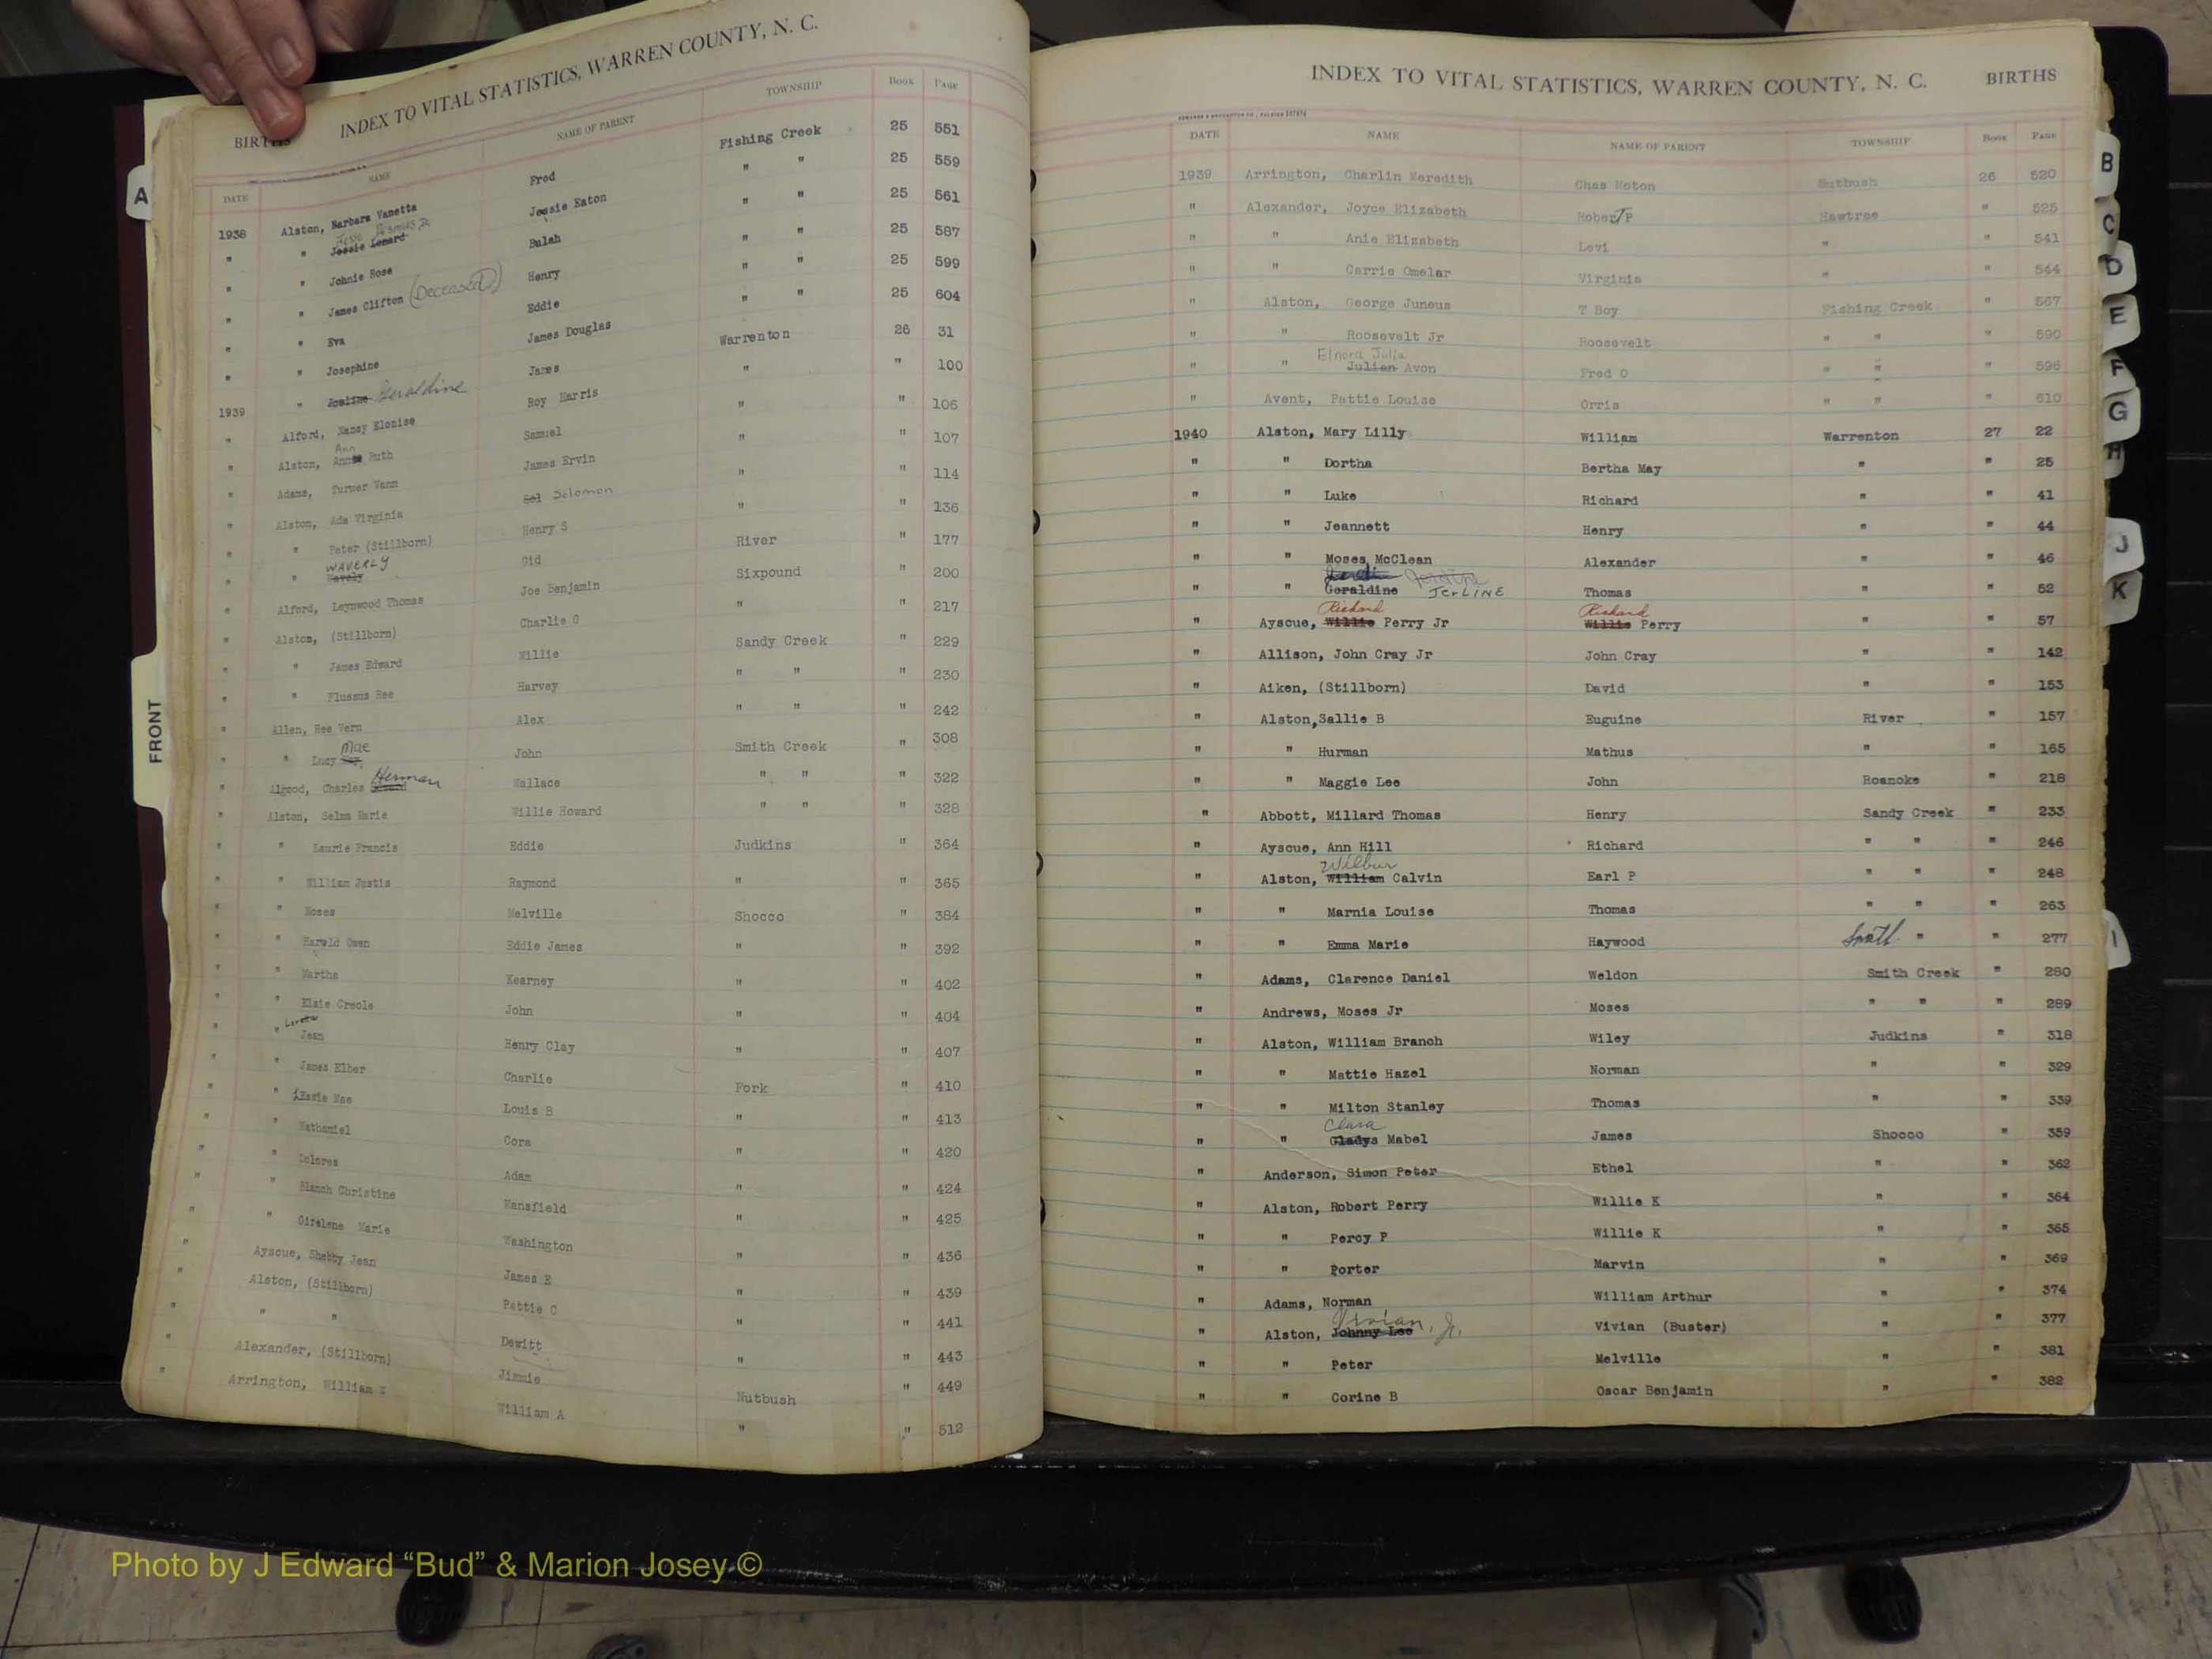 BIRTHS INDEX TO VITAL STATISTICS, WARREN COUNTY, N. C.
DATE NAME NAME OF PARENT TOWNSHIP BOOK PAGE
1938 Alston, Barbara Vanetta Fred Fishing Creek 25 551
" " Jessie Lenard Jessie Eaton " " 25 559
" " Johnie Rose Bulah " " 25 561
" " James Clifton (DECEASED) Henry " " 25 587
" " Eva Eddie " " 25 599
" " Josephine James Douglas " " 25 604
1939 " Joeline Geraldine James Warrenton 26 31
" Alford, Nancy Elonise Roy Harris " " 100
" Alston, Annie Ann Ruth Samuel " " 106
" Adams, Turner Vann James Ervin " " 107
" Alston, Ada Virginia Sol Solomon " " 114
" " Peter (Stillborn) Henry S " " 136
" " Wavely WAVERLY Gid River " 177
" Alford, Leynwood Thomas Joe Benjamin Sixpound " 200
" Alston, (Stillborn) Charlie G " " 217
" " James Edward Willie Sandy Creek " 229
" " Flussus Ree Harvey " " " 230
" Allen, Ree Vern Alex " " " 242
" " Lucy May Mae John Smith Creek " 308
" Algood, Charles Herman Wallace " " " 322
" Alston, Selma Marie Willie Howard " " " 328
" " Laurie Francis Eddie Judkins " 364
" " William Justis Raymond " " 365
" " Moses Melville Shocco " 384
" " Harold Owen Eddie James " " 392
" " Martha Kearney " " 402
" " Elsie Creole John " " 404
" " Jean Henry Clay " " 407
" " James Elber Charlie Fork " 410
" " Essie Mae Louis B " " 413
" " Nathaniel Cora " " 420
" " Dolores Adam " " 424
" " Blanch Christine Mansfield " " 425
" " Girelene Marie Washington " " 436
" Ayscue, Shebby Jean James E " " 439
" Alston, (Stillborn) Pattie C " " 441
" " " Dewitt " " 443
" Alexander, (Stillborn) Jimmie Nutbush " 449
" Arrington, William William A " " 512
INDEX TO VITAL STATISTICS, WARREN COUNTY, N. C. BIRTHS
DATE NAME NAME OF PARENT TOWNSHIP BOOK PAGE
1939 Arrington, Charlin Meredith Chas Moton Nutbush 26 520
" Alexander, Joyce Elizabeth Robert P Hawtree " 525
" " Anie Elizabeth Levi " " 541
" " Carrie Omelar Virginia " " 544
" Alston, George Juneus T Boy Fishing Creek " 567
" " Roosevelt Jr Roosevelt " " " 590
" " Elnora Julia Julian Avon Fred O " " " 596
" Avent, Pattie Louise Orris " " " 610
1940 Alston, Mary Lilly William Warrenton 27 22
" " Dortha Bertha May " " 25
" " Luke Richard " " 41
" " Jeannett Henry " " 44
" " Moses McClean Alexander " " 46
" " Geraldine JerLINE Thomas " " 52
" Ayscue, Willie Richard Perry Jr Willie Richard Perry " " 57
" Allison, John Cray Jr John Cray " " 142
" Aiken, (Stillborn) David " " 153
" Alston, Sallie B Euguine River " 157
" " Hurman Mathus " " 165
" " Maggie Lee John Roanoke " 218
" Abbott, Millard Thomas Henry Sandy Creek " 233
" Ayscue, Ann Hill Richard " " " 246
" Alston, William Wilbur Calvin Earl P " " " 248
" " Marnia Louise Thomas " " " 263
" " Emma Marie Haywood " " 277
" Adams, Clarence Daniel Weldon Smith Creek " 280
" Andrews, Moses Jr Moses " " " 289
" Alston, William Branch Wiley Judkins " 318
" " Mattie Hazel Norman " " 329
" " Milton Stanley Thomas " " 339
" " Gladys Clara Mabel James Shocco " 359
" Anderson, Simon Peter Ethel " " 362
" Alston, Robert Perry Willie K " " 364
" " Percy P Willie K " " 365
" " Porter Marvin " " 369
" Adams, Norman William Arthur " " 374
" Alston, Johnny Lee Vivian, Jr. Vivian (Buster) " " 377
" " Peter Melville " " 381
" " Corine B Oscar Benjamin " " 382
A
FRONT
B
C
D
E
F
G
H
J
K
I
Photo by J Edward “Bud” & Marion Josey ©